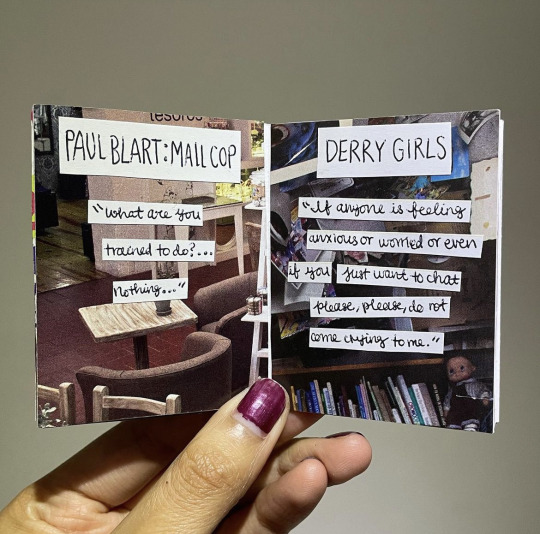 tesoros
PAUL BLART: MALL COP
"What are you
trained to do?...
Nothing..."
DERRY GIRLS
"If anyone is feeling
anxious or worried or even
if you just want to chat
please, please, do not
come crying to me."